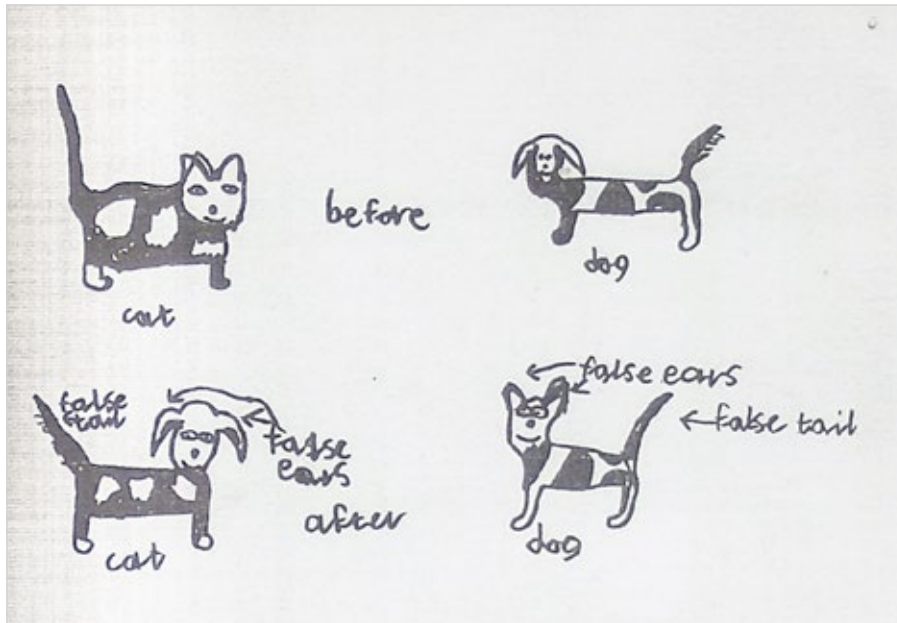 before
dog
cat
false
tail
false
ears
false ears
false tail
after
cat
dog